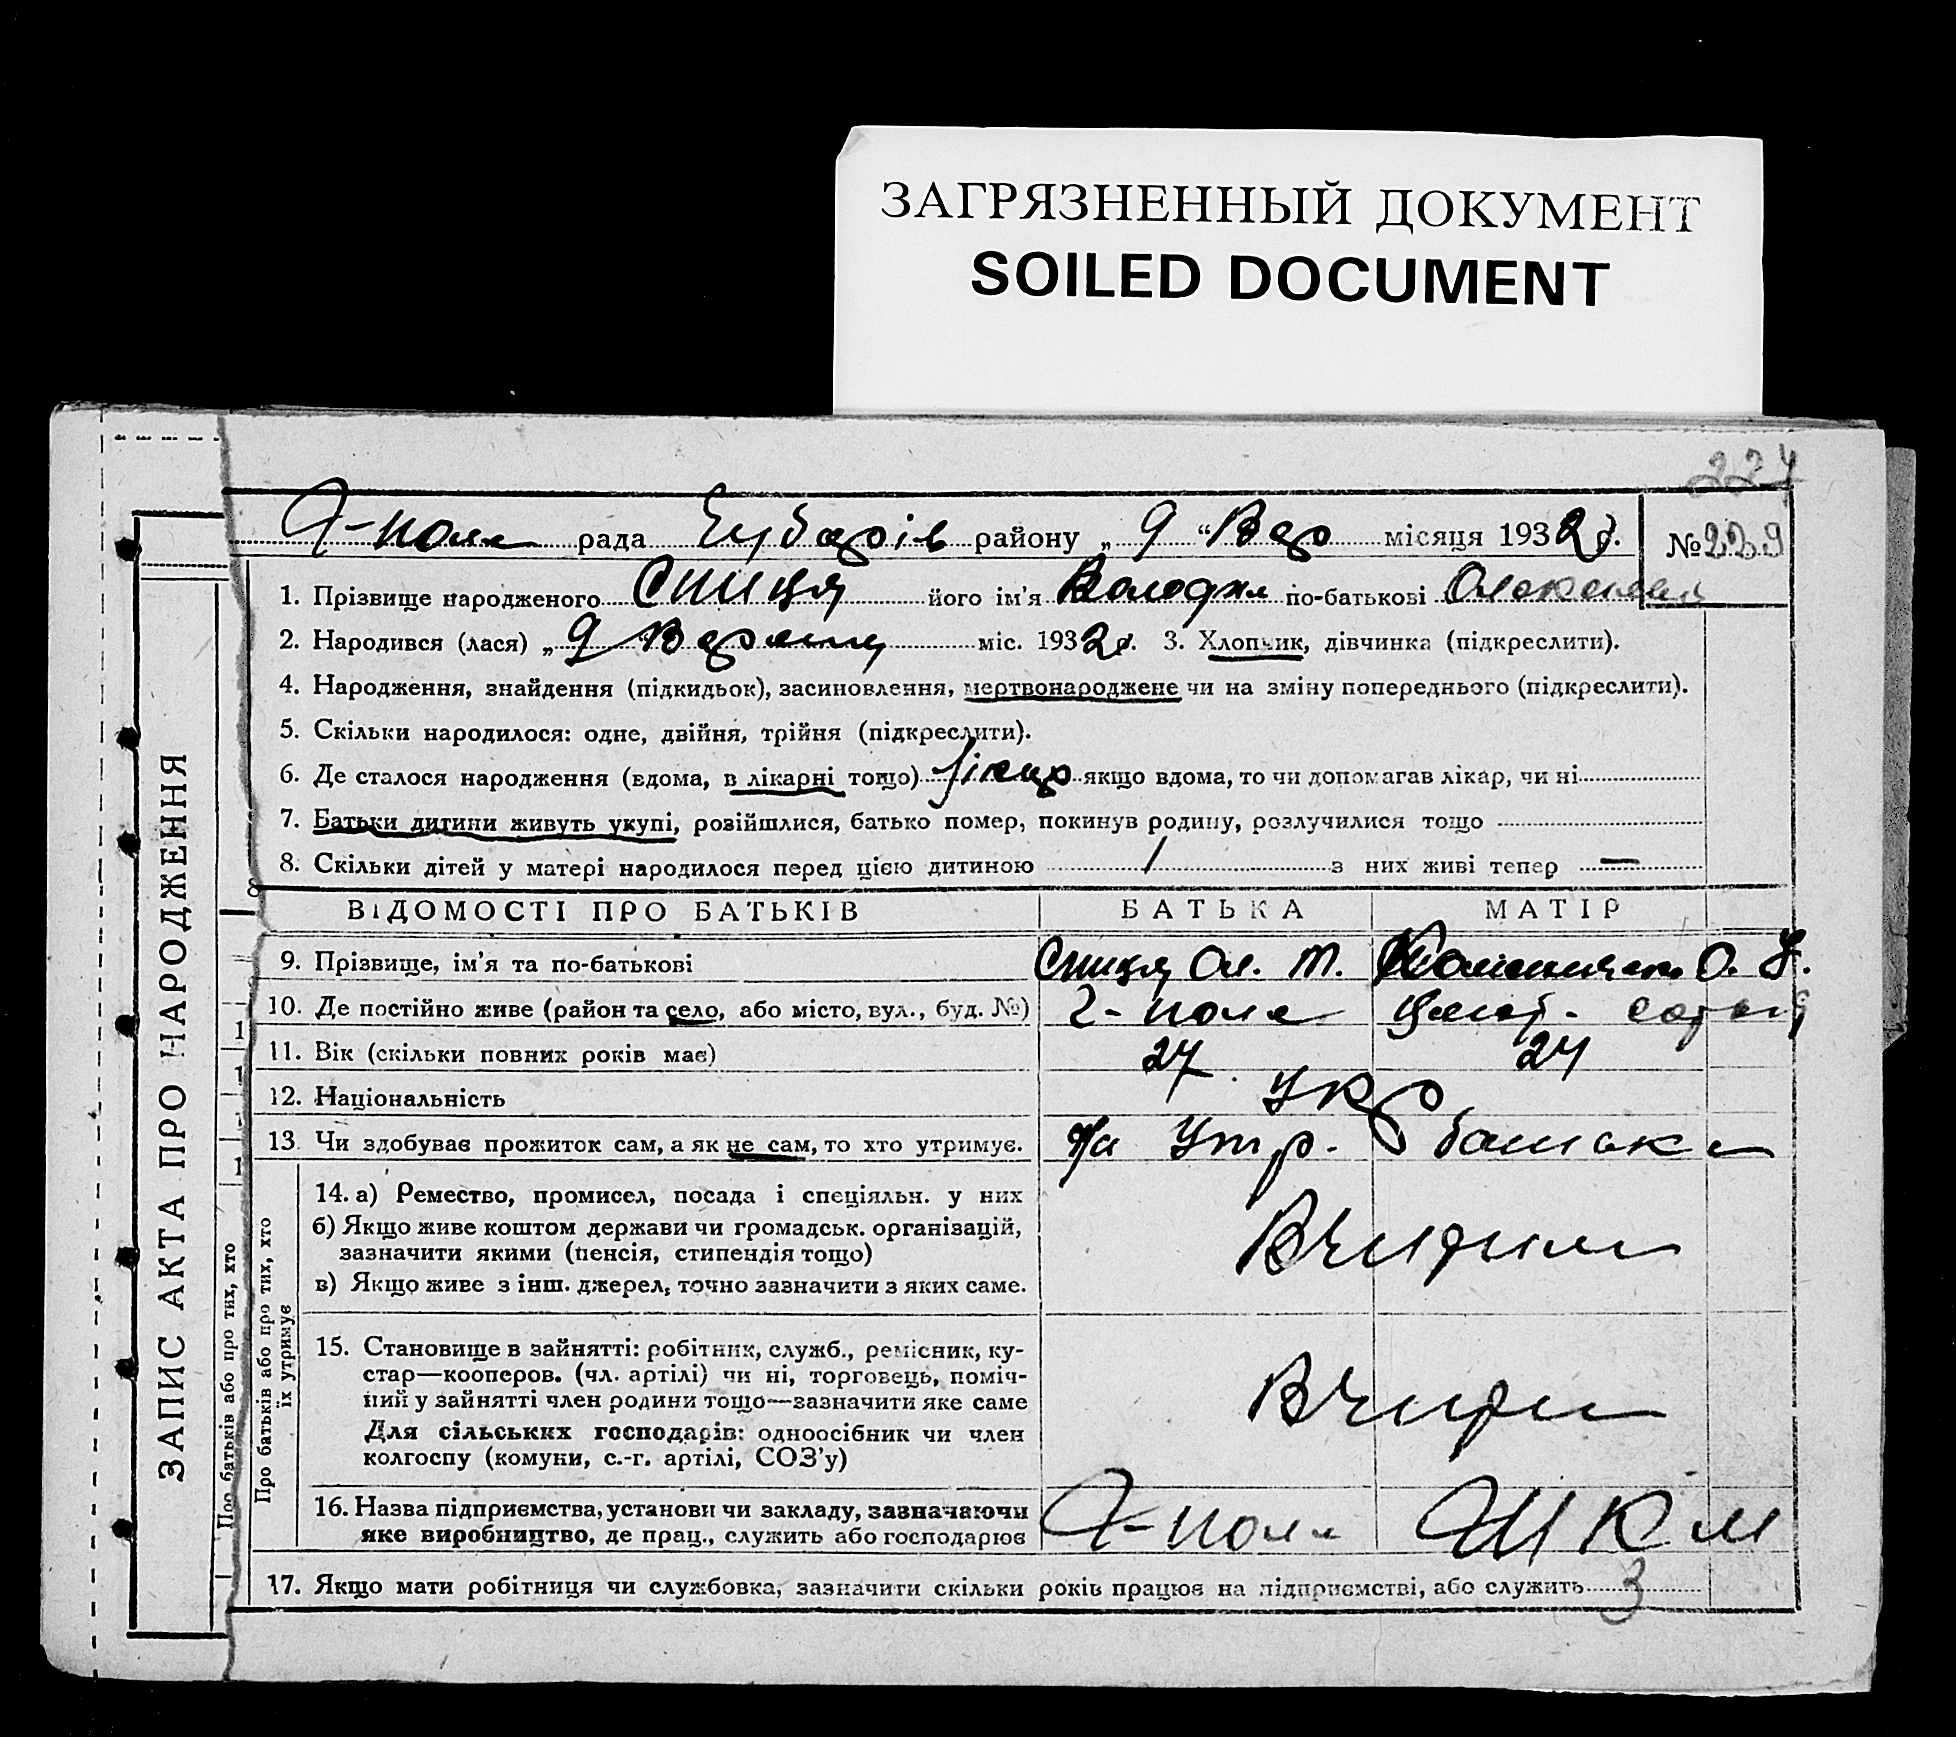 ЗАГРЯЗНЕННЫЙ ДОКУМЕНТ
SOILED DOCUMENT
227
Г-поля рада районy „ 9 “ Вер місяця 1932 р. № 229
1. Прізвище народженого Спиця його ім'я Володим по-батькові
2. Народився (лася) „ 9 Вересня міс. 1932 р. 3. Хлопчик, дівчинка (підкреслити).
4. Народження, знайдення (підкидьок), засиновлення, мертвонароджене чи на зміну попереднього (підкреслити).
5. Скільки народилося: одне, двійня, трійня (підкреслити).
6. Де сталося народження (вдома, в лікарні тощо) якщо вдома, то чи допомагав лікар, чи ні
7. Батьки дитини живуть укупі, розійшлися, батько помер, покинув родину, розлучилися тощо
8. Скільки дітей у матері народилося перед цією дитиною 1 з них живі тепер —
ВІДОМОСТІ ПРО БАТЬКІВ БАТЬКА МАТІР
9. Прізвище, ім'я та по-батькові Спиця Ол. Т. О. У.
10. Де постійно живе (район та село, або місто, вул., буд. №) Г-поля
11. Вік (скільки повних років має) 27 24
12. Національність Укр
13. Чи здобуває прожиток сам, а як не сам, то хто утримує. На утр. батька
14. а) Ремество, промисел, посада і спеціяльн. у них
б) Якщо живе коштом держави чи громадськ. організацій,
зазначити якими (пенсія, стипендія тощо)
в) Якщо живе з інш. джерел, точно зазначити з яких саме.
15. Становище в зайнятті: робітник, служб., ремісник, ку-
стар—кооперов. (чл. артілі) чи ні, торговець, поміч-
ний у зайнятті член родини тощо—зазначити яке саме
Для сільських господарів: одноосібник чи член
колгоспу (комуни, с.-г. артілі, СОЗ'у)
16. Назва підприємства, установи чи закладу, зазначаючи
яке виробництво, де прац., служить або господарює Г-поля ШКМ
17. Якщо мати робітниця чи службовка, зазначити скільки років працює на підприємстві, або служить 3
ЗАПИС АКТА ПРО НАРОДЖЕННЯ
Про батьків або про тих, хто
Про батьків або про тих, хто
їх утримує